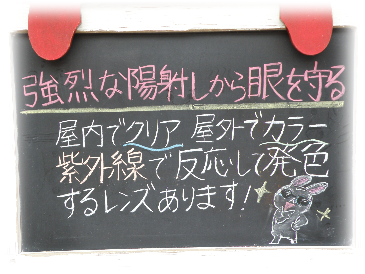 強烈な陽射しから眼を守る
屋内でクリア 屋外でカラー
紫外線で反応して発色
するレンズあります!